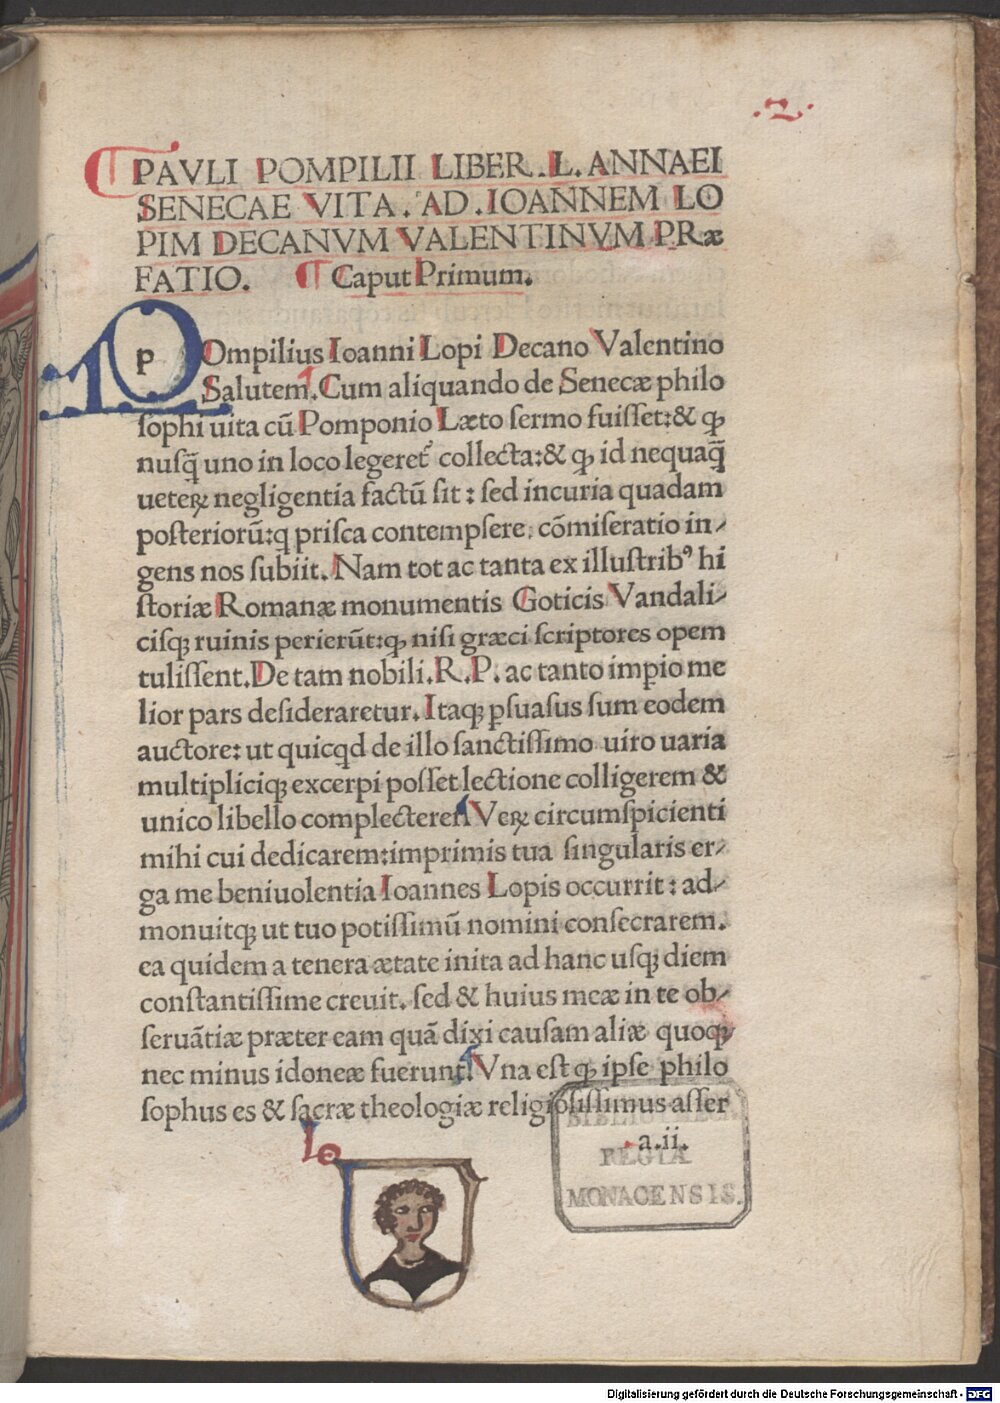 .2.
PAVLI POMPILII LIBER. L. ANNAEI
SENECAE VITA. AD. IOANNEM LO
PIM DECANVM VALENTINVM PRæ
FATIO. Caput Primum.
pOmpilius Ioanni Lopi Decano Valentino
Salutem. Cum aliquando de Senecæ philo
ſophi uita cū Pomponio Læto ſermo fuiſſet: & ꝙ
nuſq̄ uno in loco legeret᷑ collecta: & ꝙ id nequaq̄
ueteꝝ negligentia factū ſit: ſed incuria quadam
poſteriorū: q priſca contempſere, cōmiſeratio in-
gens nos ſubiit. Nam tot ac tanta ex illuſtribꝰ hi
ſtoriæ Romanæ monumentis Goticis Vandali-
ciſqꝫ ruinis perierūt: ꝙ niſi græci ſcriptores opem
tuliſſent. De tam nobili. R. P. ac tanto impio me
lior pars deſideraretur. Itaqꝫ ꝑſuaſus ſum eodem
auctore: ut quicqd de illo ſanctiſſimo uiro uaria
multipliciqꝫ excerpi poſſet lectione colligerem &
unico libello complecterer. Veꝝ circumſpicienti
mihi cui dedicarem: imprimis tua ſingularis er-
ga me beniuolentia Ioannes Lopis occurrit: ad-
monuitqꝫ ut tuo potiſſimū nomini conſecrarem.
ea quidem a tenera ætate inita ad hanc uſqꝫ diem
conſtantiſſime creuit. ſed & huius meæ in te ob-
ſeruātiæ præter eam quā dixi cauſam aliæ quoqꝫ
nec minus idoneæ fuerunt. Vna eſt ꝙ ipſe philo
ſophus es & ſacræ theologiæ religioſiſſimus aſſer
a.ii.
BIBLIOTHECA
REGIA
MONACENSIS.
Digitalisierung gefördert durch die Deutsche Forschungsgemeinschaft - DFG